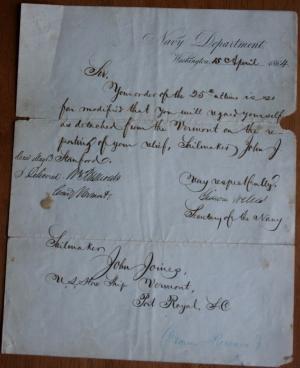 Navy Department
Washington 15 April 1864
Sir,
Your order of the 25th ultimo is so
far modified that you will regard yourself
as detached from the Vermont on the re
porting of your relief, Sailmaker John J
Stanford.
Very respectfully,
Gideon Welles
Secretary of the Navy
Sailmaker
John Joines,
U.S. Store Ship Vermont,
Port Royal, S.C.